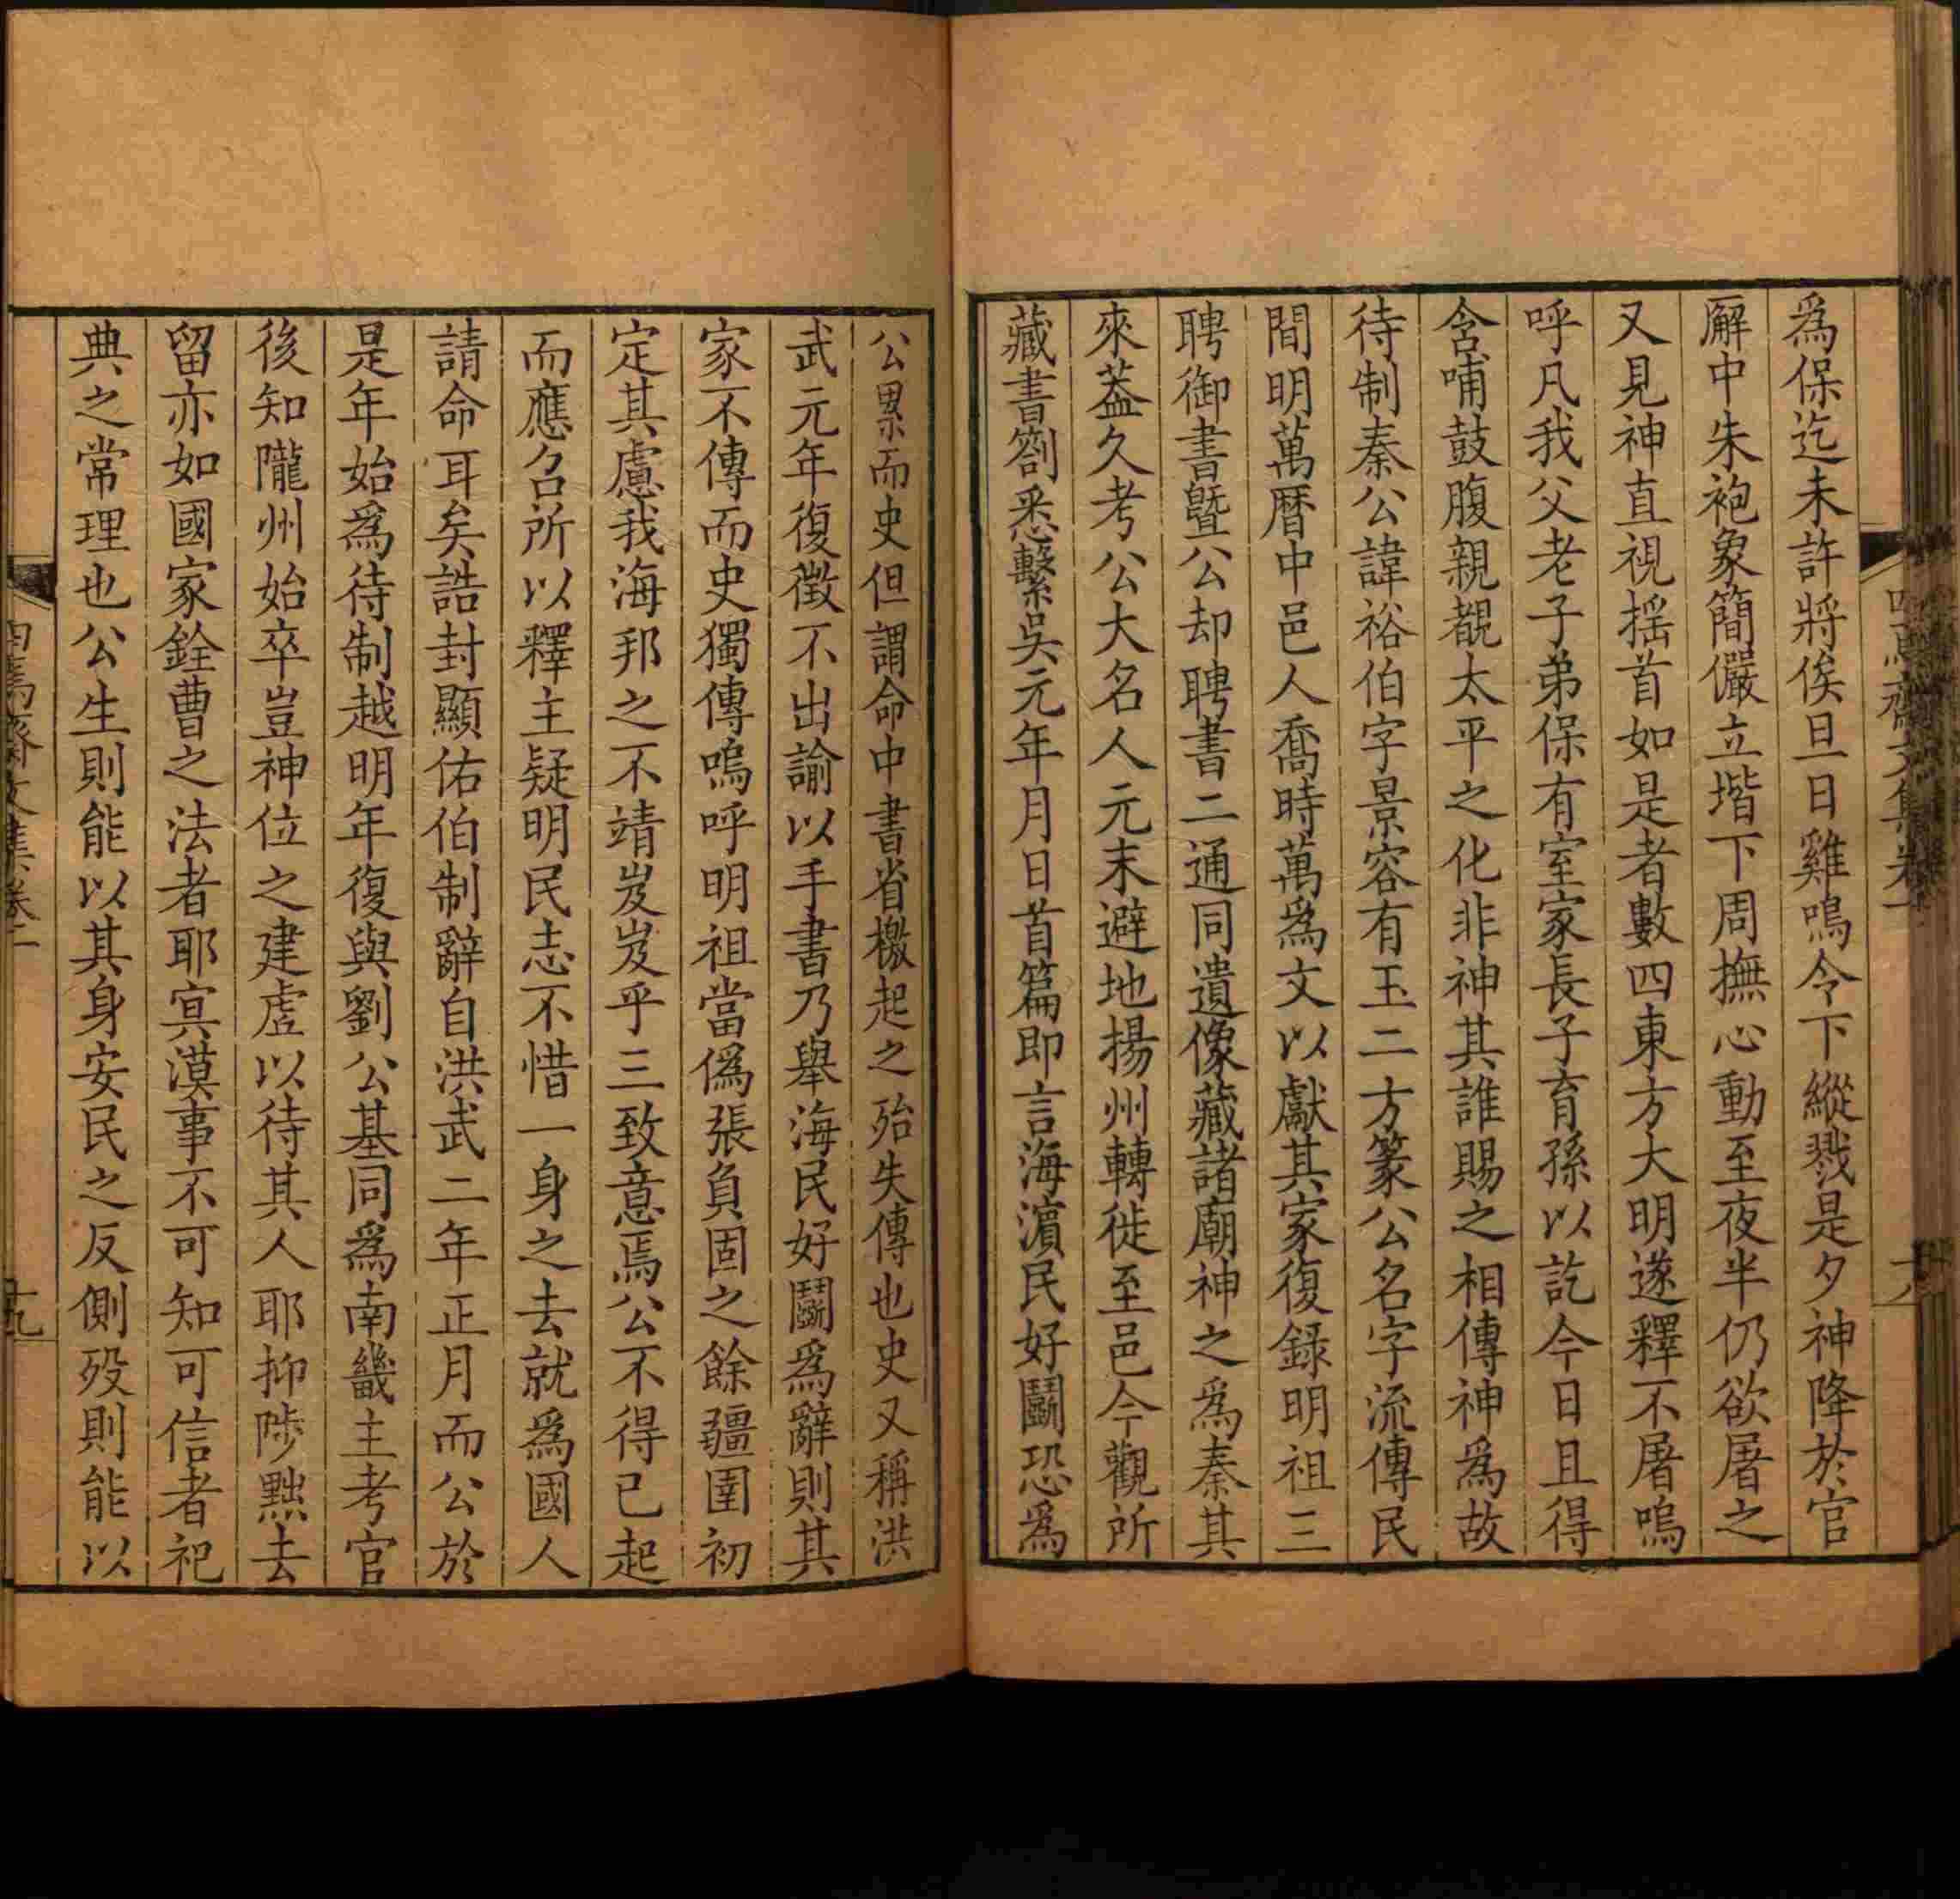 為保迄未許將俟旦日雞鳴令下縱戮是夕神降於官
廨中朱袍象簡儼立堦下周撫心動至夜半仍欲屠之
又見神直視揺首如是者數四東方大明遂釋不屠嗚
呼凡我父老子弟保有室家長子育孫以訖今日且得
含哺鼓腹親覩太平之化非神其誰賜之相傳神為故
待制秦公諱裕伯字景容有玉二方篆公名字流傳民
間明萬曆中邑人喬時萬為文以獻其家復録明祖三
聘御書曁公却聘書二通同遺像藏諸廟神之為秦其
來葢久考公大名人元末避地揚州轉徙至邑今觀所
藏書劄悉繫吳元年月日首篇即言海濵民好鬭恐為
公累而史但謂命中書省檄起之殆失傳也史又稱洪
武元年復徵不出諭以手書乃舉海民好鬭為辭則其
家不傳而史獨傳嗚呼明祖當偽張負固之餘疆圉初
定其慮我海邦之不靖岌岌乎三致意焉公不得已起
而應召所以釋主疑明民志不惜一身之去就為國人
請命耳矣誥封顯佑伯制辭自洪武二年正月而公於
是年始為待制越明年復與劉公基同為南畿主考官
後知隴州始卒豈神位之建虛以待其人耶抑陟黜去
留亦如國家銓曹之法者耶冥漠事不可知可信者祀
典之常理也公生則能以其身安民之反側歿則能以